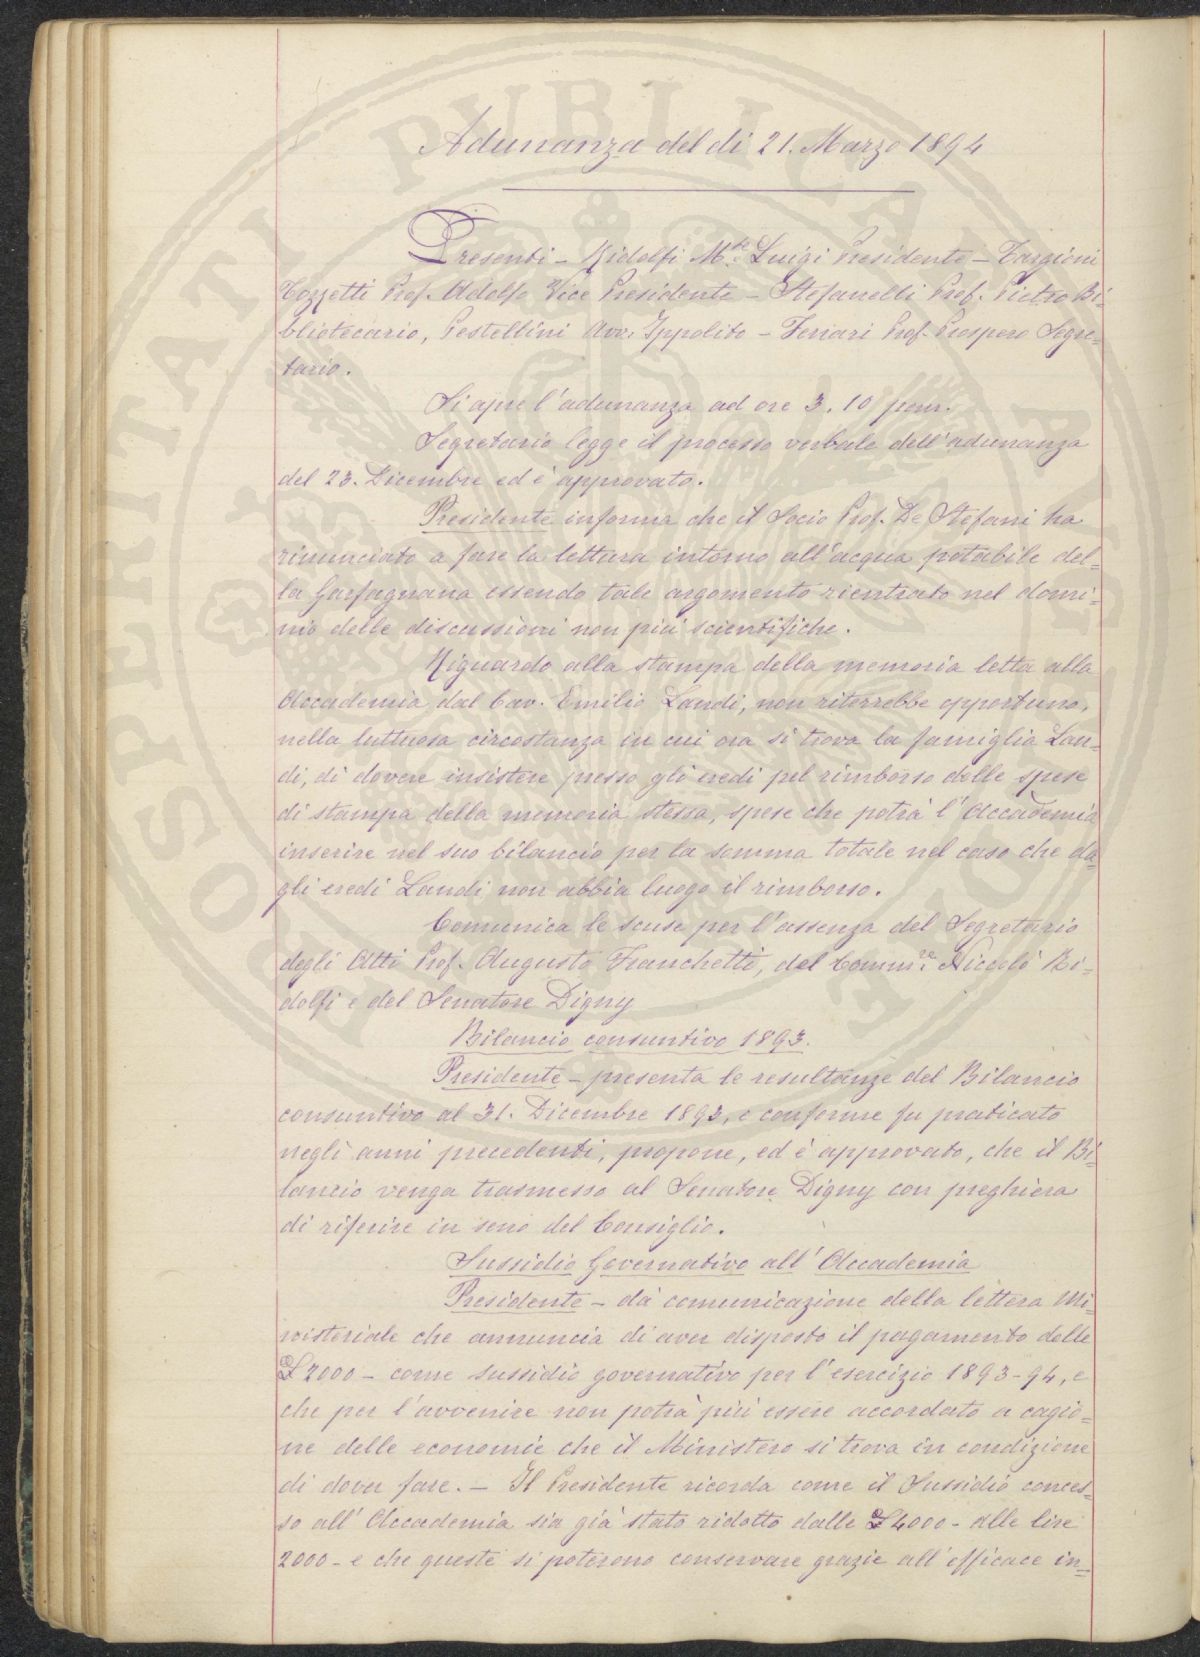 Adunanza del dì 21. Marzo 1894
Presenti - Ridolfi M.se Luigi Presidente - Targioni
Tozzetti Prof. Adolfo Vice Presidente - Stefanelli Prof. Pietro Bi-
bliotecario, Pestellini Avv. Ippolito - Ferrari Prof. Prospero Segre=
tario.
Si apre l'adunanza ad ore 3,10 pom.
Segretario legge il processo verbale dell'adunanza
del 23. Dicembre ed è approvato.
Presidente informa che il Socio Prof. De Stefani ha
rinunciato a fare la lettura intorno all'acqua potabile del=
la Garfagnana essendo tale argomento rientrato nel domi=
nio delle discussioni non più scientifiche.
Riguardo alla stampa della memoria letta alla
Accademia dal Cav. Emilio Landi, non riterrebbe opportuno,
nella luttuosa circostanza in cui ora si trova la famiglia Lan=
di, di dovere insistere presso gli eredi pel rimborso delle spese
di stampa della memoria stessa, spese che potrà l'Accademia
inserire nel suo bilancio per la somma totale nel caso che da
gli eredi Landi non abbia luogo il rimborso.
Comunica le scuse per l'assenza del Segretario
degli Atti Prof. Augusto Franchetti, del Comm.re Niccolò Ri-
dolfi e del Senatore Digny
Bilancio consuntivo 1893.
Presidente - presenta le resultanze del Bilancio
consuntivo al 31. Dicembre 1893, e conforme fu praticato
negli anni precedenti, propone, ed è approvato, che il Bi-
lancio venga trasmesso al Senatore Digny con preghiera
di riferire in seno del Consiglio.
Sussidio Governativo all'Accademia
Presidente - dà comunicazione della lettera Mi-
nisteriale che annuncia di aver disposto il pagamento delle
£ 2000 - come sussidio governativo per l'esercizio 1893-94, e
che per l'avvenire non potrà più essere accordato a cagio=
ne delle economie che il Ministero si trova in condizione
di dover fare. - Il Presidente ricorda come il Sussidio conces-
so all'Accademia sia già stato ridotto dalle £ 4000 - alle lire
2000 - e che queste si poterono conservare grazie all'efficace in=
PROSPERITATI PUBLICAE AUGENDAE